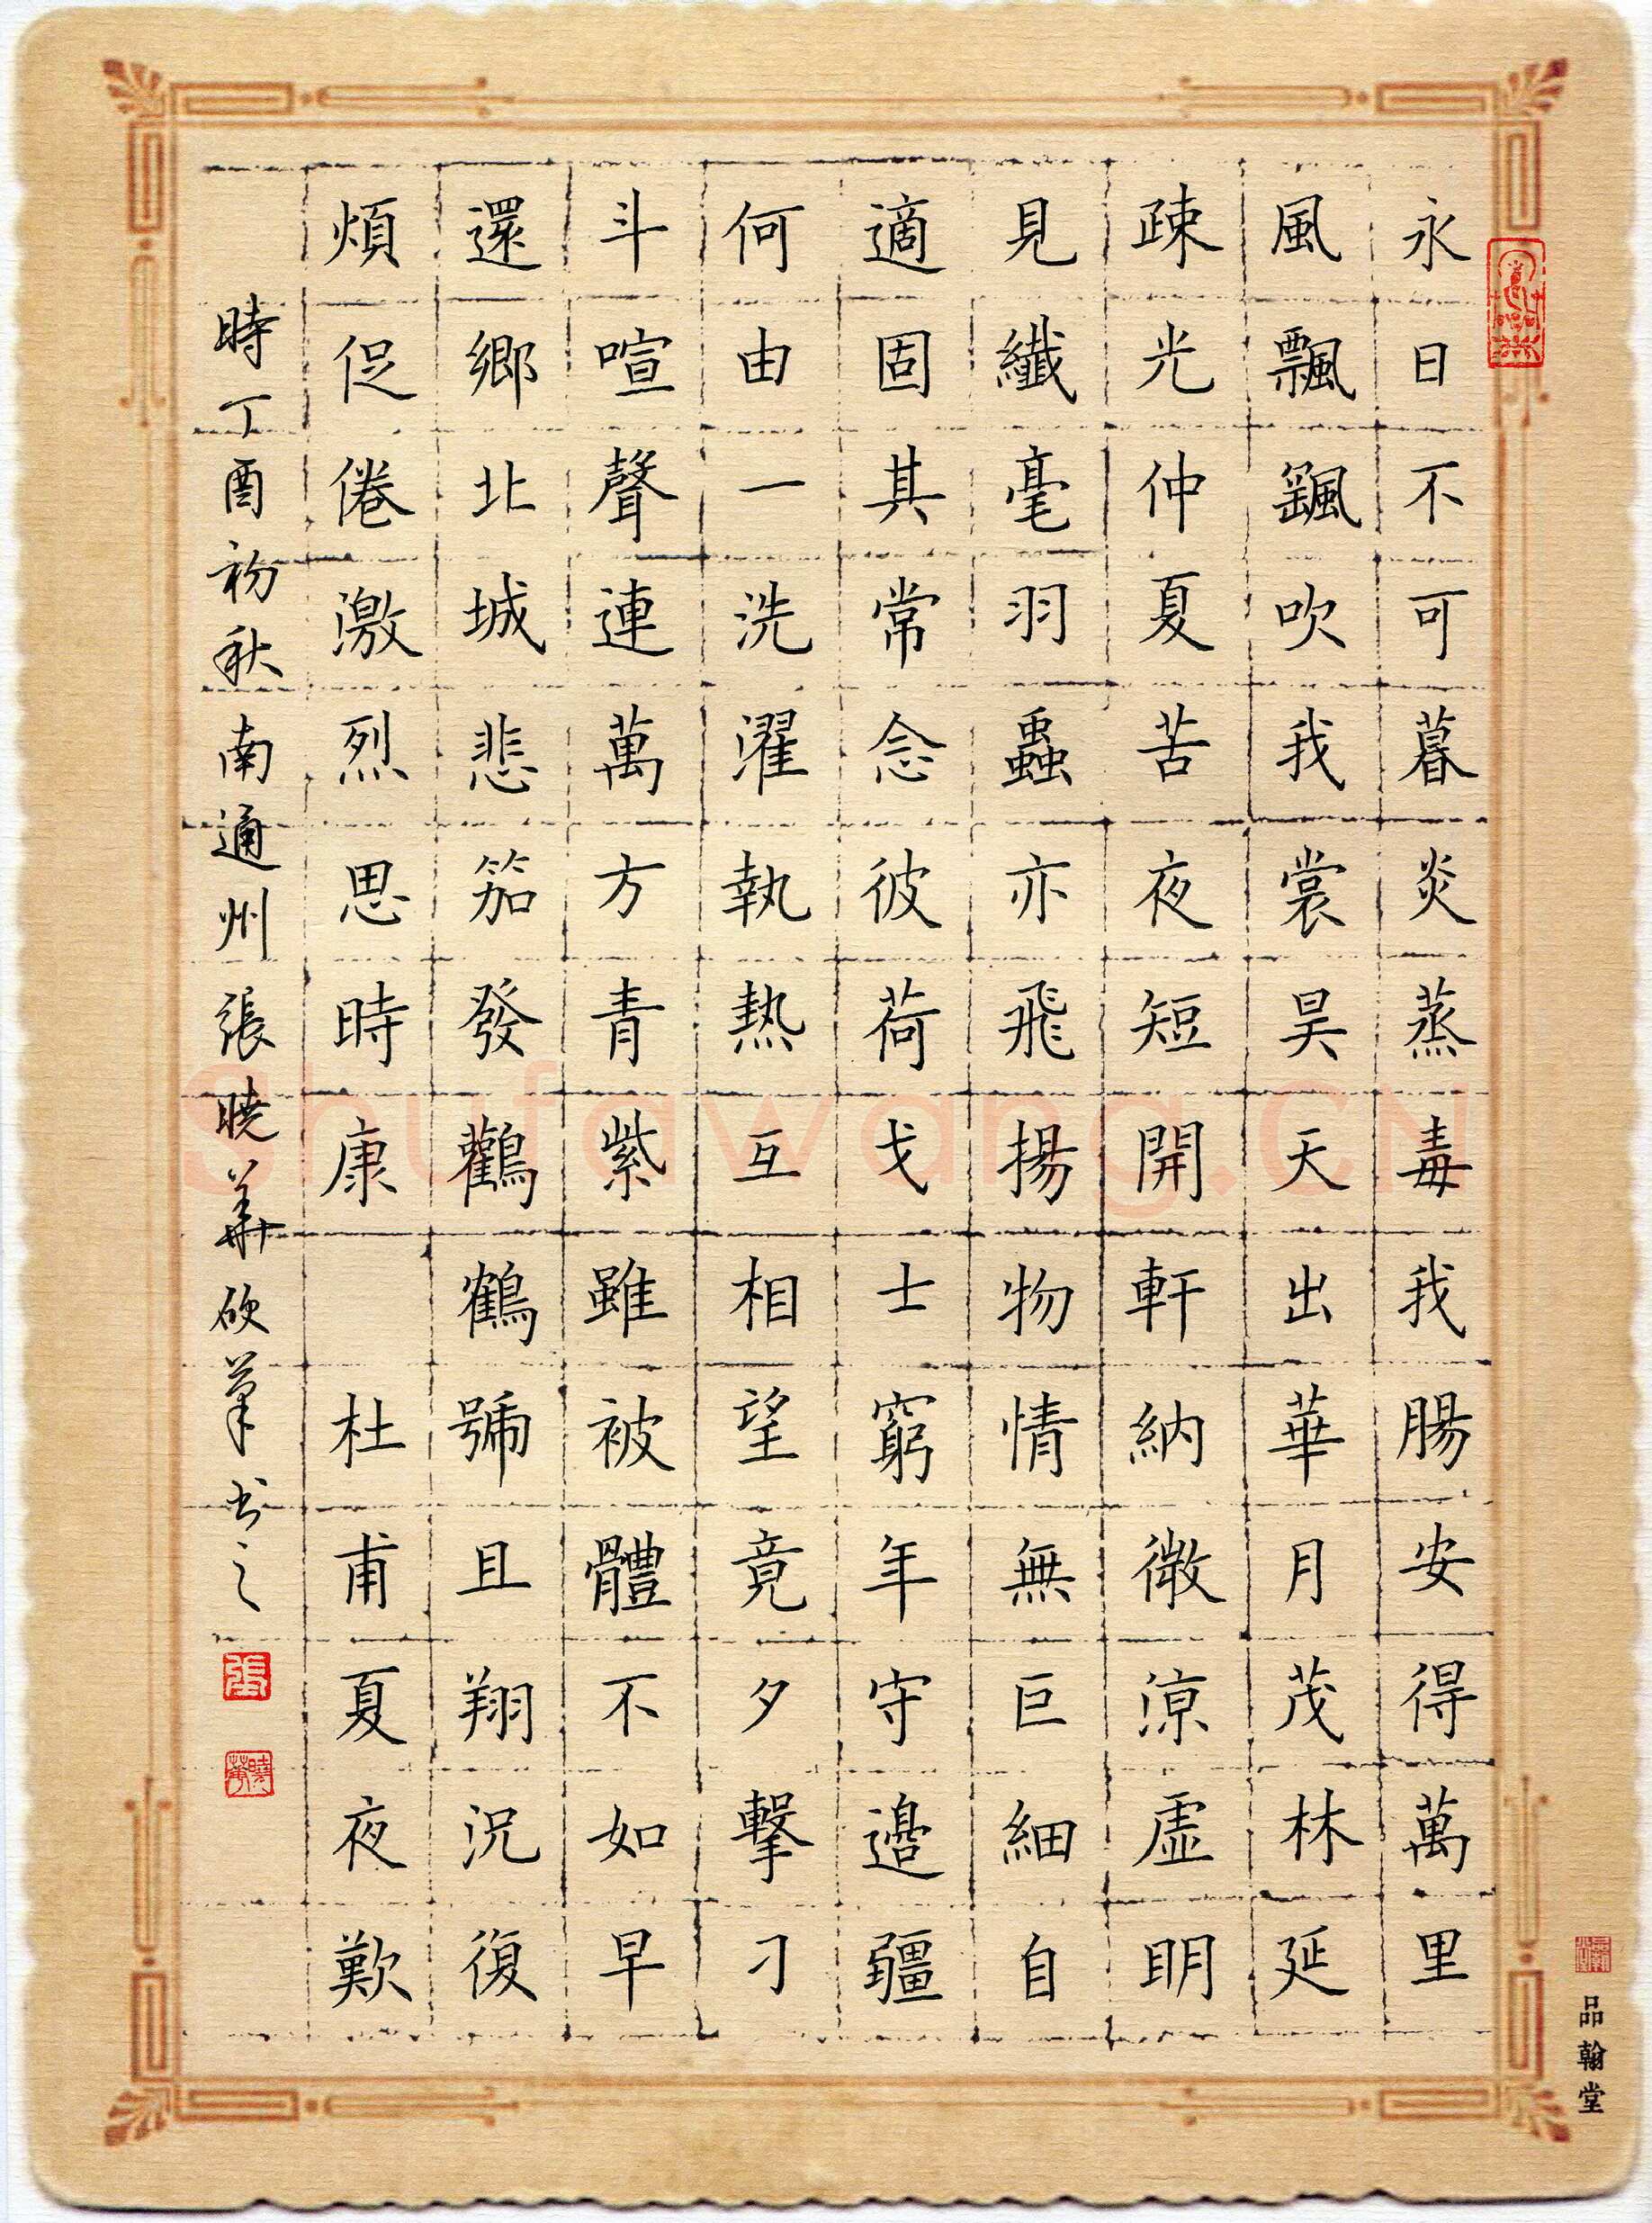 永日不可暮炎蒸毒我腸安得萬里
風飄颻吹我裳昊天出華月茂林延
疎光仲夏苦夜短開軒納微涼虛明
見纖毫羽蟲亦飛揚物情無巨細自
適固其常念彼荷戈士窮年守邊疆
何由一洗濯執熱互相望竟夕擊刁
斗喧聲連萬方青紫雖被體不如早
還鄉北城悲笳發鸛鶴號且翔況復
煩促倦激烈思時康 杜甫夏夜歎
時丁酉初秋南通州張曉華硬筆書之
張
曉華
品翰堂
Shufawang.CN